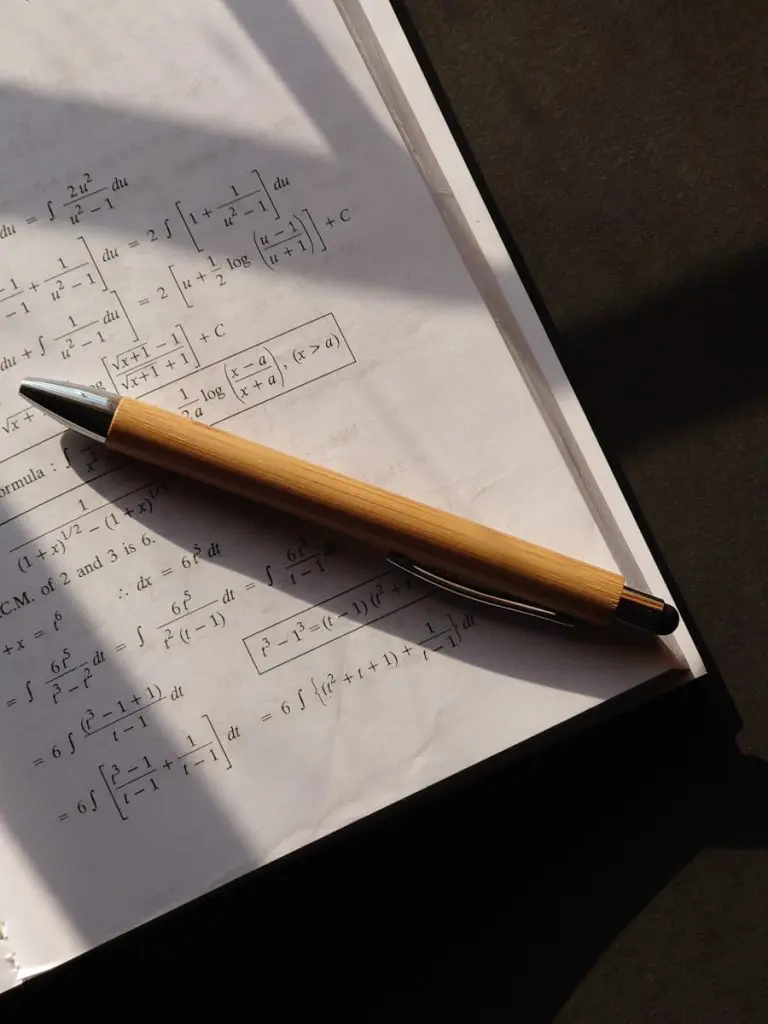 du = ∫ 2u²/(u² − 1) du
−1/−1 + 1/(u² − 1)] du = 2 ∫ [1 + 1/(u² − 1)] du
du + ∫ 1/(u² − 1) du] = 2 [u + 1/2 log ((u − 1)/(u + 1))] + C
√x + [(√x+1 − 1)/(√x+1 + 1)] + C
ormula : ∫ 1/2a log ((x − a)/(x + a)), (x > a)
1/((1 + x)^1/2 − (1 + x)^1/
.C.M. of 2 and 3 is 6.
+ x = t⁶ ∴ dx = 6t⁵ dt
= ∫ 6t⁵/(t³ − t²) dt = ∫ 6t⁵/(t² (t − 1)) dt = ∫ 6t³/(t − 1) dt
= 6 ∫ (t³ − 1 + 1)/(t − 1) dt t³ − 1³ = (t − 1) (t² +
= 6 ∫ [(t³ − 1)/(t − 1) + 1/(t − 1)] dt = 6 ∫ {(t² + t + 1) + 1/(t − 1)} dt